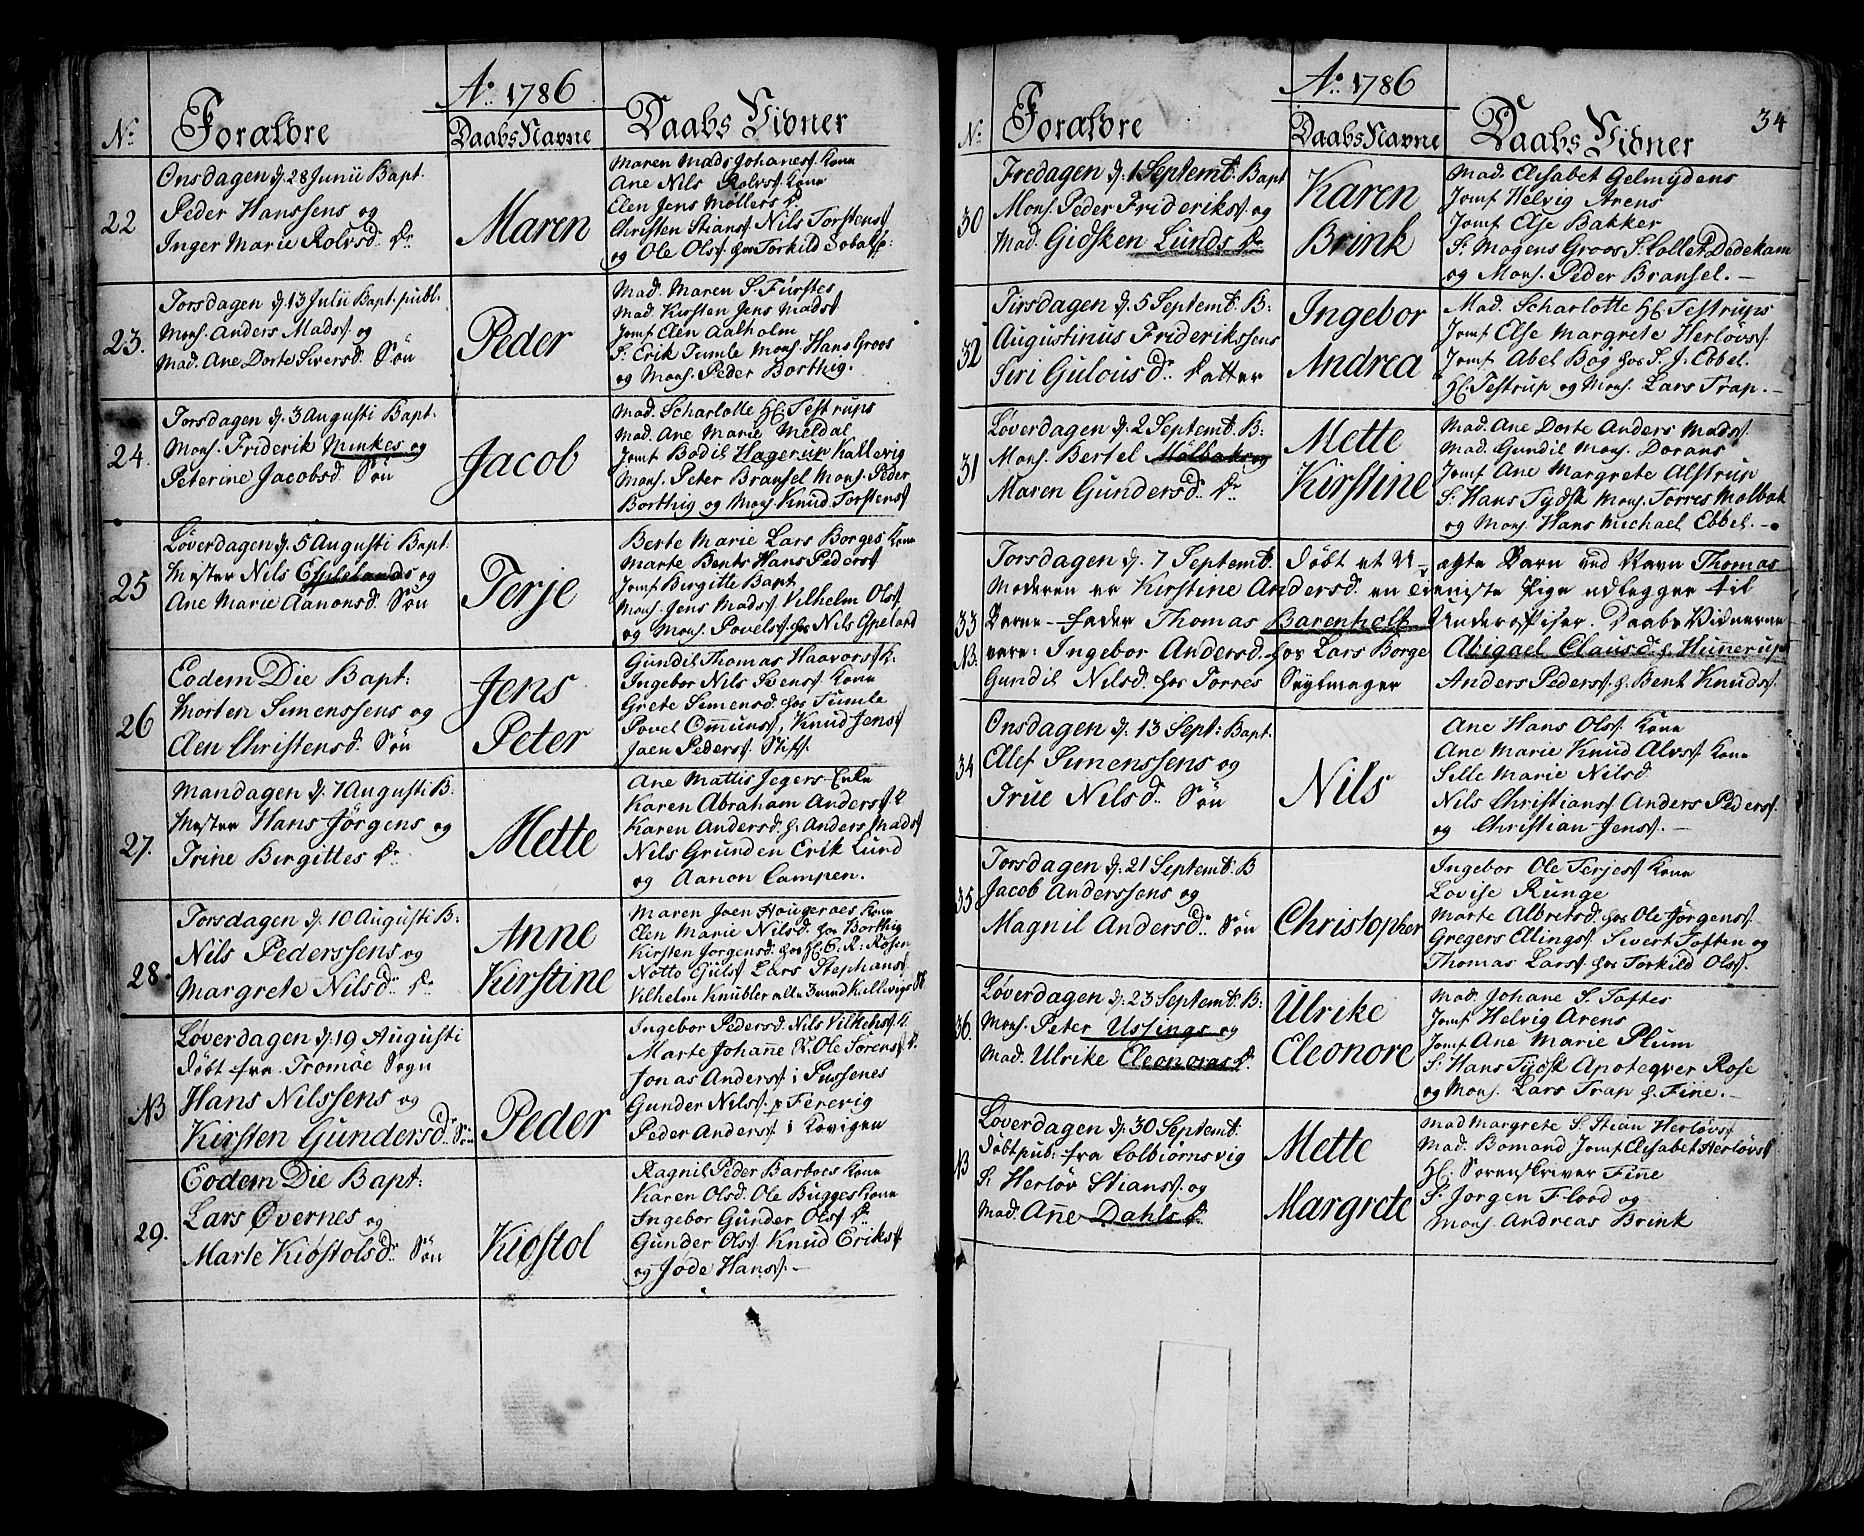 Ao. 1786
No. Forældre
Daabs Navne
Daabs Vidner
22
Onsdagen d. 28 Junii Bapt.
Peder Hanssens og
Inger Marie Rolvsd. Dr.
Maren
Maren Mads Johanes. Kone
Ane Nils Rolvs. Kone
Elen Jens Møllers Dr.
Christen Stians. Nils Torstens.
og Ole Ols. hos Torkild
23.
Torsdagen d. 13 Julii Bapt. publ.
Mons. Anders Mads. og
Mad. Ane Dorte Siversd. Søn
Peder
Mad. Maren S. Fürstes
Mad. Kirsten Jens Mads.
Jomf. Elen Aalholm
S. Erik Tumle Mons. Hans Groos
og Mons. Peder Borthig.
24.
Torsdagen d. 3 Augusti Bapt.
Mons. Friderik Minkes og
Peterine Jacobsd. Søn
Jacob
Mad. Scharlotte H. Testrups
Mad. Ane Marie Meldal
Jomf. Bodil Hagerup Kallevig
Mons. Peter Bransel Mons. Peder
Borthig og Mons. Knud Torstens.
25
Løverdagen d. 5 Augusti Bapt.
Mester Nils Espelands og
Ane Marie Aanonsd. Søn
Terje
Berte Marie Lars Borges Kone
Marte Bents Hans Peders.
Jomf. Birgitte Bart
Mons. Jens Mads. Vilhelm Ols.
og Mons. Povels. hos Nils Espeland
26
Eodem Die Bapt:
Morten Simenssens og
Elen Christensd. Søn
Jens
Peter
Gundil Thomas Haavors. K.
Ingebor Nils Svens. Kone
Grete Simensd. hos Tumle
Povel Omuns. Knud Jens.
Jaen Peders.
27.
Mandagen d. 7 Augusti B.
Mester Hans Jørgens og
Trine Birgittes Dr.
Mette
Ane Mattis Jegers Enke
Karen Abraham Anders. K
Karen Andersd. h. Anders Mads.
Nils Grunden Erik Lund
og Aanon Campen.
28
Torsdagen d. 10 Augusti B:
Nils Pederssens og
Margrete Nilsd. Dr.
Anne
Kirstine
Maren Jaen Hougeraes Kone
Elen Marie Nilsd. hos Borthig
Kirsten Jorgensd. hos H. C. R. Rosen
Notto Guls. Lars Stephans.
Vilhelm Knubler
NB
Løverdagen d. 19 Augusti
Døbt fra Tromøe Sogn
Hans Nilssens og
Kirsten Gundersd. Søn
Peder
Ingebor Pedersd. Nils Vilkens. K.
Marte Johane K. Ole Sorens. D.
Jonas Anders. i Pussenes
Gunder Nils. p. Ferevig
Peder Anders. i Kovigen
29.
Eodem Die Bapt:
Lars Øvernes og
Marte Kiøstolsd. Søn
Kiøstol
Ragnil Peder Barboes Kone
Karen Olsd. Ole Bugges Kone
Ingebor Gunder Ols. Dr.
Gunder Ols. Knud Eriks.
og Jøde Hans.
Ao. 1786
34
No. Forældre
Daabs Navne
Daabs Vidner
30
Fredagen d. 1 Septembr. Bapt
Mons. Peder Frideriks. og
Mad. Gidsken Lunds Dr.
Karen
Brink
Mad. Elisabet Gelmydens
Jomf. Helvig Arens
Jomf. Else Bakker
S. Mogens Groos S. Collet Dedekam
og Mons. Peder Bransel.
32
Tirsdagen d. 5 Septembr. B.
Augustinus Friderikssens
Siri Gulovsd. Datter
Ingebor
Andrea
Mad. Scharlotte H. Testrups
Jomf. Else Margrete Herløvs.
Jomf. Abel Bog hos S. J. Ebbel.
H. Testrup og Mons. Lars Trap.
31
Løverdagen d. 2 Septembr. B:
Mons. Bertel Molbaks og
Maren Gundersd. Dr.
Mette
Kirstine
Mad. Ane Dorte Anders Mads.
Mad. Gundil Mons. Dorans
Jomf. Ane Margrete Alstrup
S. Hans Tydsk Mons. Torres Molbak
og Mons. Hans Michael Ebbel.
33
NB.
Torsdagen d. 7 Septembr. Døbt et U-ægte Barn ved Navn Thomas
Moderen er Kirstine Andersd. en tieniste Pige udlegger til
Barne-Fader Thomas Barenholt Underofficer. Daabs Vidnerne
vare: Ingebor Andersd. hos Lars Borge Abigael Clausd. h. Hunnerup
Gundil Nilsd. hos Torres Seylmager Anders Peders. h. Bent Knuds.
34
Onsdagen d. 13 Sept: Bapt.
Alef Simenssens og
True Nilsd. Søn
Nils
Ane Hans Ols. Kone
Ane Marie Knud Alvs. Kone
Sille Marie Nilsd.
Nils Christians. Anders Peders.
og Christian Jens.
35
Torsdagen d. 21 Septembr. B
Jacob Anderssens og
Magnil Andersd. Søn
Christopher
Ingebor Ole Terjes. Kone
Lovise Runge
Marte Albretsd. hos Ole Jørgens.
Gregers Elings. Sivert Toften og
Thomas Lars. hos Torkild Ols.
36.
Løverdagen d. 23 Septembr. B:
Mons. Peter Ussings og
Mad. Ulrike Eleonoras Dr.
Ulrike
Eleonore
Mad. Johane S. Toftes
Jomf. Helvig Arens
Jomf. Ane Marie Plum
S. Hans Tydsk Apoteqver Rose
og Mons. Lars Trap h. Fine.
NB
Løverdagen d. 30 Septembr.
Døbt pub. fra Colbiørnsvig
S. Herløv Stians. og
Mad. Anne Dahls Dr.
Mette
Margrete
Mad Margrete S. Stian Herløvs.
Mad. Bomand Jomf. Elisabet Herløvs.
H. Sorenskriver Fine
S. Jorgen Flood og
Mons. Andreas Brink